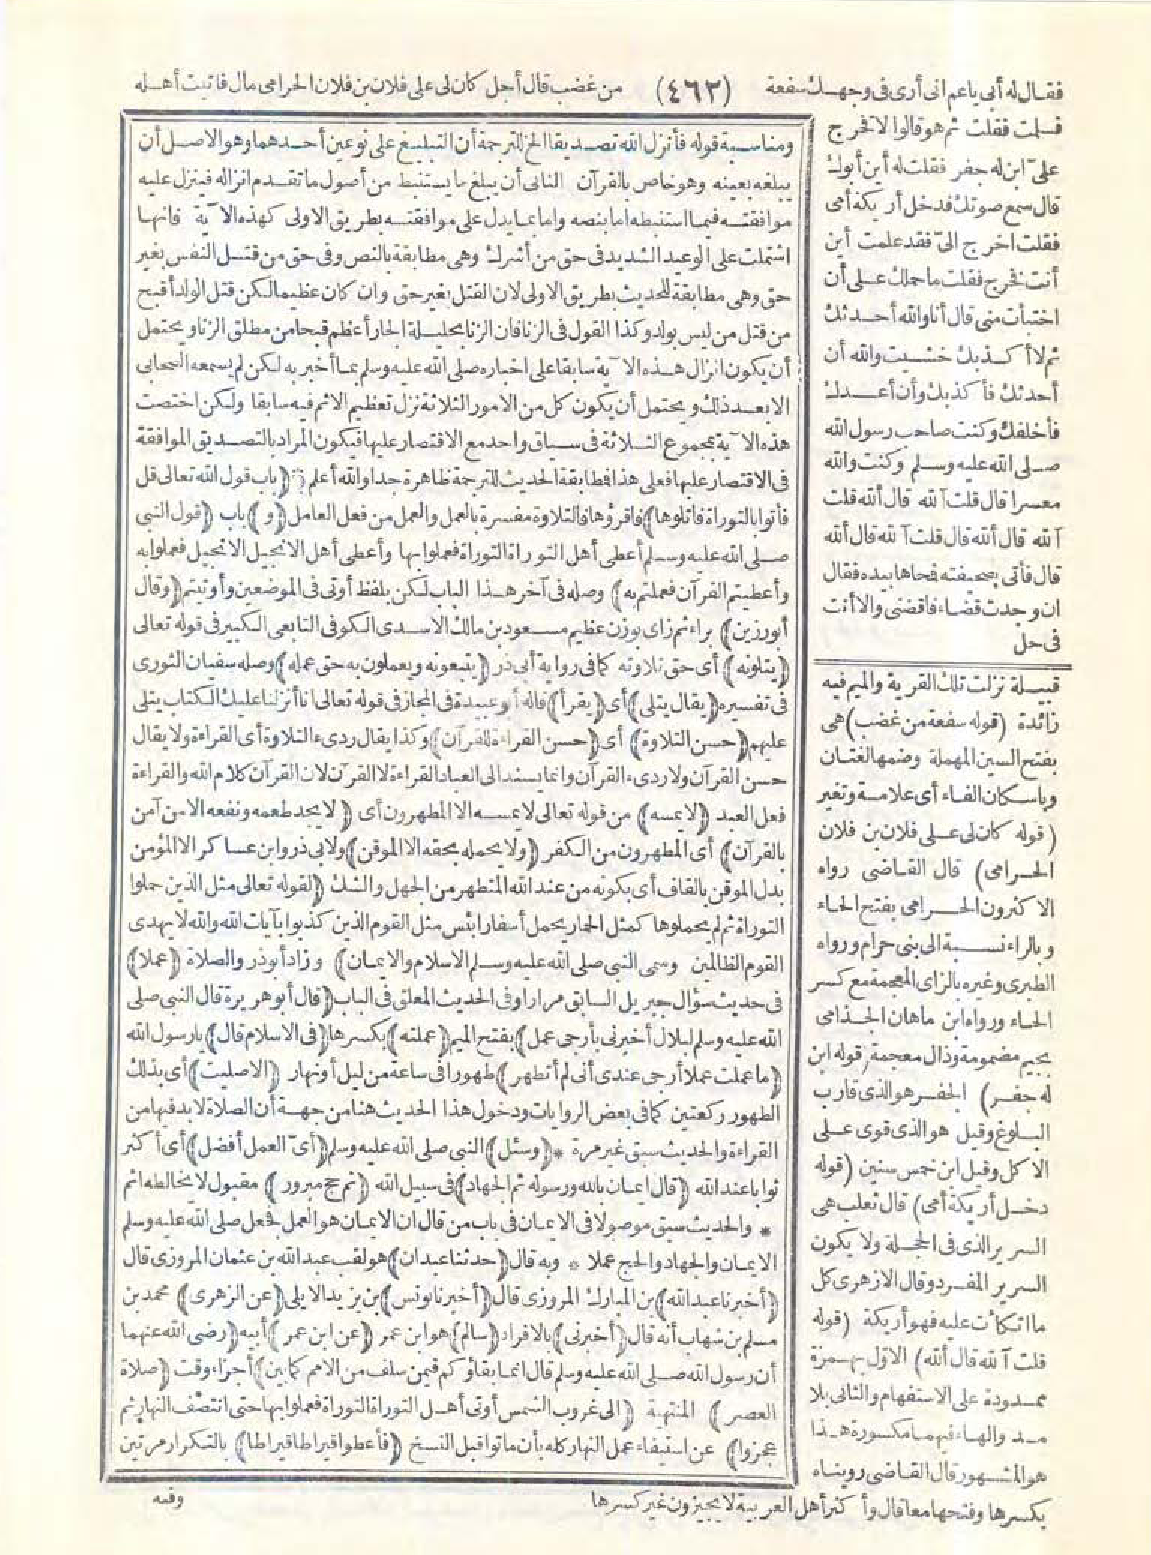 فقال له أبي ياعم اني أرى في وجهك سفعة (٤٦٣) من غضب قال أجل كان لي على فلان بن فلان الحرامي مال فاتيت أهله
فسلمت فقلت ثم هو قالوا لا فخرج
علىّ ابن له جفر فقلت له أين أبوك
قال سمع صوتك فدخل أريكة أمي
فقلت اخرج الىّ فقد علمت أين
أنت فخرج فقلت ما حملك على أن
اختبأت مني قال أنا والله أحدثك
ثم لا أكذبك خشيت والله أن
أحدثك فأكذبك وأن أعدك
فأخلفك وكنت صاحب رسول الله
صلى الله عليه وسلم وكنت والله
معسرا قال قلت آلله قال ألله قلت
آلله قال ألله قال قلت آلله قال ألله
قال فأتى بصحيفته فمحاها بيده فقال
ان وجدت قضاء فاقضني والا أنت
في حل
قبيلة نزلت تلك القرية والميم فيه
زائدة (قوله سفعة من غضب) هي
بفتح السين المهملة وضمها لغتان
وباسكان الفاء أي علامة وتغير
(قوله كان لي على فلان بن فلان
الحرامي) قال القاضي رواه
الاكثرون الحرامي بفتح الحاء
وبالراء نسبة الى بني حرام ورواه
الطبري وغيره بالزاي المعجمة مع كسر
الحاء ورواه ابن ماهان الجذامي
بجيم مضمومة وذال معجمة (قوله ابن
له جفر) الجفر هو الذي قارب
البلوغ وقيل هو الذي قوى على
الاكل وقيل ابن خمس سنين (قوله
دخل أريكة أمي) قال ثعلب هي
السرير الذي في الحجلة ولا يكون
السرير المفرد وقال الازهري كل
ما اتكأت عليه فهو أريكة (قوله
قلت آلله قال ألله) الاول بهمزة
ممدودة على الاستفهام والثاني بلا
مد والهاء فيهما مكسورة هذا
هو المشهور قال القاضي رويناه
بكسرها وفتحها معا قال وأكثر أهل العربية لا يجيزون غير كسرها
ومناسبة قوله فأنزل الله تصديقا الخ للترجمة أن التبليغ على نوعين أحدهما وهو الاصل أن
يبلغه بعينه وهو خاص بالقرآن الثاني أن يبلغ ما يستنبط من أصول ما تقدم انزاله فينزل عليه
موافقته فيما استنبطه اما بنصه واما بما يدل على موافقته بطريق الاولى كهذه الآية فانها
اشتملت على الوعيد الشديد في حق من أشرك وهي مطابقة بالنص وفي حق من قتل النفس بغير
حق وهي مطابقة للحديث بطريق الاولى لان القتل بغير حق وان كان عظيما لكن قتل الولد أقبح
من قتل من ليس بولد وكذا القول في الزنا فان الزنا بحليلة الجار أعظم قبحا من مطلق الزنا ويحتمل
أن يكون انزال هذه الآية سابقا على اخباره صلى الله عليه وسلم بما أخبر به لكن لم يسمعه الصحابي
الا بعد ذلك ويحتمل أن يكون كل من الامور الثلاثة نزل تعظيم الاثم فيه سابقا ولكن اختصت
هذه الآية بمجموع الثلاثة في سياق واحد مع الاقتصار عليها فيكون المراد بالتصديق الموافقة
في الاقتصار عليها فعلى هذا فطابقة الحديث للترجمة ظاهرة جدا والله أعلم ﴿باب قول الله تعالى قل
فأتوا بالتوراة فاتلوها﴾ فاقرؤها فالتلاوة مفسرة بالعمل والعمل من فعل العامل (و) باب (قول النبي
صلى الله عليه وسلم أعطى أهل التوراة التوراة فعملوا بها وأعطى أهل الانجيل الانجيل فعملوا به
وأعطيتم القرآن فعملتم به) وصله في آخر هذا الباب لكن بلفظ أوتي في الموضعين وأوتيتم (وقال
أبو رزين) براء ثم زاي بوزن عظيم مسعود بن مالك الاسدي الكوفي التابعي الكبير في قوله تعالى
(يتلونه) أي حق تلاوته كما في رواية أبي ذر (يتبعونه ويعملون به حق عمله) وصله سفيان الثوري
في تفسيره (يقال يتلى) أي (يقرأ) قاله أبو عبيدة في المجاز في قوله تعالى انا أنزلنا عليك الكتاب يتلى
عليهم (حسن التلاوة) أي (حسن القراءة للقرآن) وكذا يقال ردىء التلاوة أي القراءة ولا يقال
حسن القرآن ولا ردىء القرآن وانما يسند الى العباد القراءة لا القرآن لان القرآن كلام الله والقراءة
فعل العبد (لا يمسه) من قوله تعالى لا يمسه الا المطهرون أي (لا يجد طعمه ونفعه الا من آمن
بالقرآن) أي المطهرون من الكفر (ولا يحمله بحقه الا الموقن) ولابي ذر وابن عساكر الا المؤمن
بدل الموقن بالقاف أي بكونه من عند الله المتطهر من الجهل والشك (لقوله تعالى مثل الذين حملوا
التوراة ثم لم يحملوها كمثل الحمار يحمل أسفارا بئس مثل القوم الذين كذبوا بآيات الله والله لا يهدي
القوم الظالمين وسمى النبي صلى الله عليه وسلم الاسلام والايمان) وزاد أبو ذر والصلاة (عملا)
في حديث سؤال جبريل السابق مرارا وفي الحديث المعلق في الباب (قال أبو هريرة قال النبي صلى
الله عليه وسلم لبلال أخبرني بأرجى عمل) بفتح الميم (عملته) بكسرها (في الاسلام قال) يا رسول الله
(ما عملت عملا أرجى عندي أني لم أتطهر) طهورا في ساعة من ليل أو نهار (الا صليت) أي بذلك
الطهور ركعتين كما في بعض الروايات ودخول هذا الحديث هنا من جهة أن الصلاة لا بد فيها من
القراءة والحديث سبق غير مرة * (وسئل) النبي صلى الله عليه وسلم (أىّ العمل أفضل) أي أكثر
ثوابا عند الله (قال ايمان بالله ورسوله ثم الجهاد) في سبيل الله (ثم حج مبرور) مقبول لا يخالطه اثم
* والحديث سبق موصولا في الايمان في باب من قال ان الايمان هو العمل فجعل صلى الله عليه وسلم
الايمان والجهاد والحج عملا * وبه قال (حدثنا عبدان) هو لقب عبد الله بن عثمان المروزي قال
(أخبرنا عبد الله) بن المبارك المروزي قال (أخبرنا يونس) بن يزيد الايلي (عن الزهري) محمد بن
مسلم بن شهاب أنه قال (أخبرني) بالافراد (سالم) هو ابن عمر (عن ابن عمر) أبيه (رضي الله عنهما
أن رسول الله صلى الله عليه وسلم قال انما بقاؤكم فيمن سلف من الامم كما بين) أجزاء وقت (صلاة
العصر) المنتهية (الى غروب الشمس أوتي أهل التوراة التوراة فعملوا بها حتى انتصف النهار ثم
عجزوا) عن استيفاء عمل النهار كله بأن ماتوا قبل النسخ (فأعطوا قيراطا قيراطا) بالتكرار مرتين
وفيه